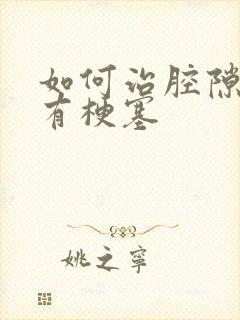 如何治腔隙
有梗塞
姚之寧